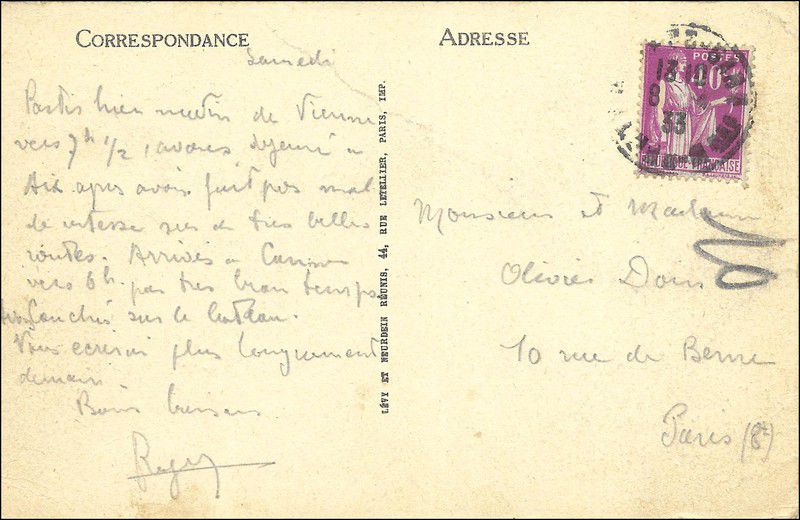 CORRESPONDANCE
Samedi
Partis hier matin de Vienne
vers 7h 1/2, avons déjeuné à
Aix après avoir fait pas mal
de vitesse sur de très belles
routes. Arrivés à Cannes
vers 6h. pas très beau temps
Couché sur le bateau.
Vous écrirai plus longuement
demain.
Bons baisers
Roger
LÉVY ET NEURDEIN RÉUNIS, 44, RUE LETELLIER, PARIS, IMP.
ADRESSE
POSTES
13 10
8
33
RÉPUBLIQUE FRANÇAISE
Monsieur et Madame
Olivier
10 rue de Berne
Paris (8e)